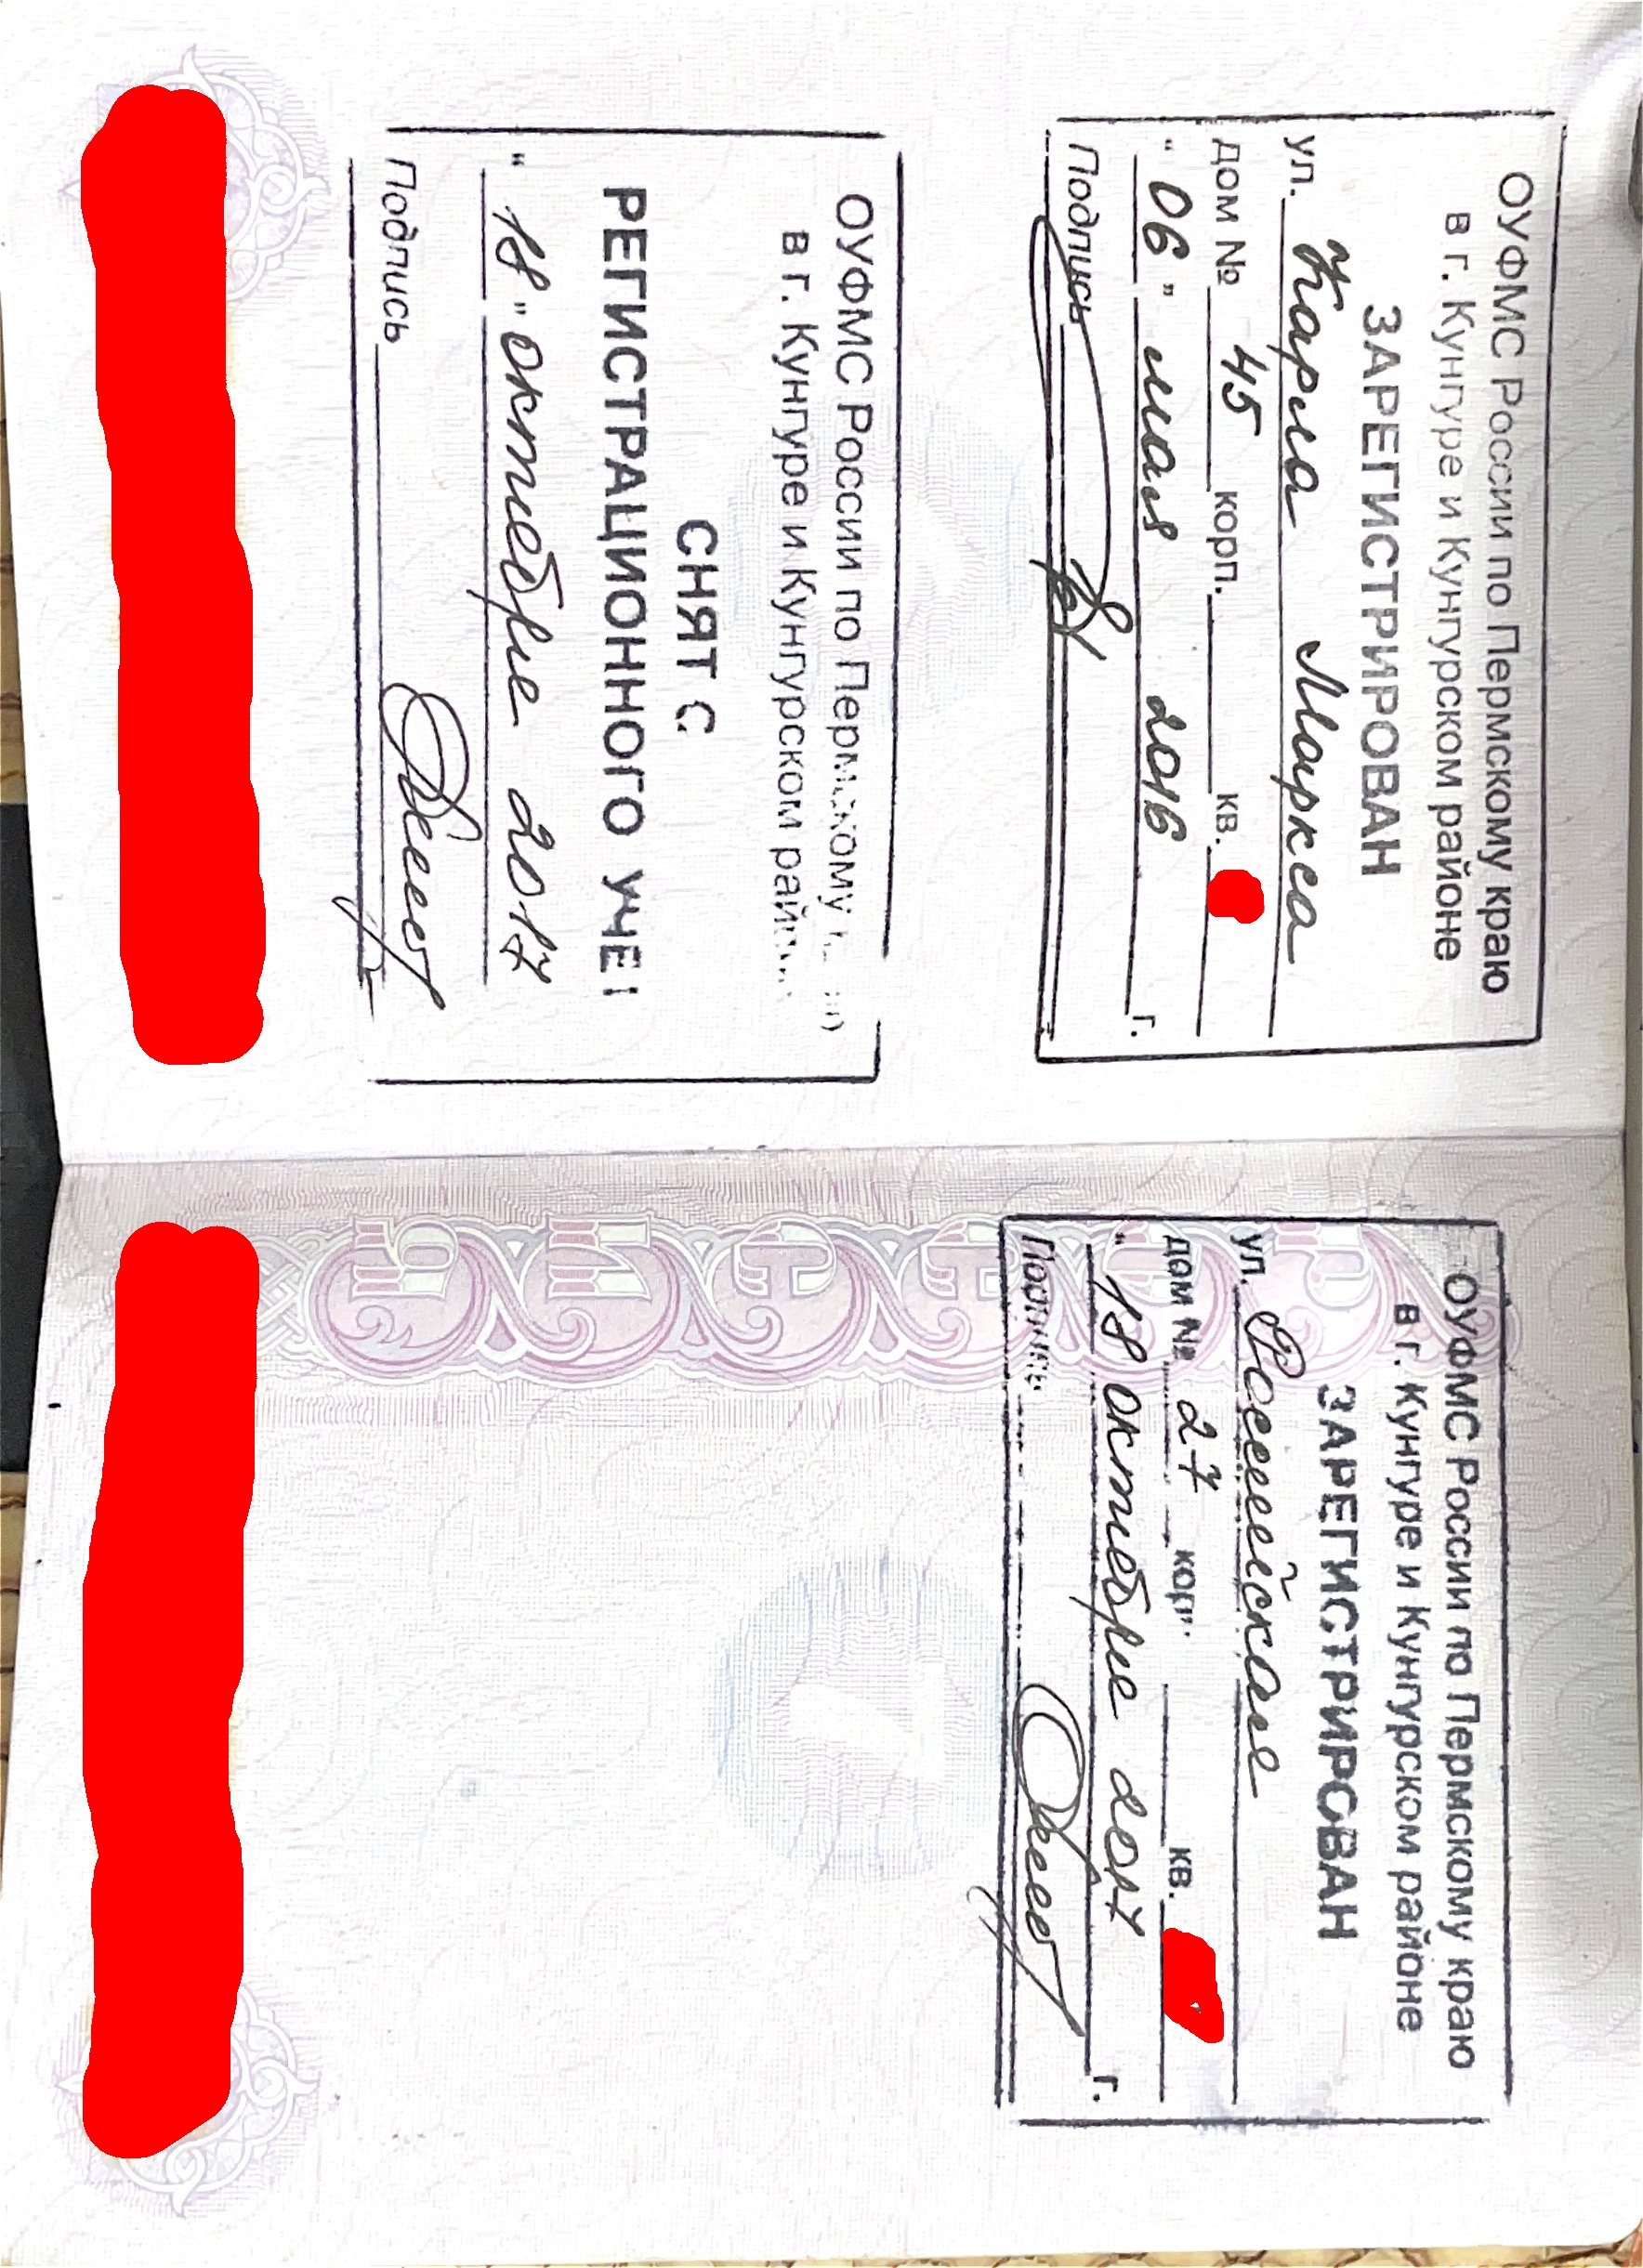 ОУФМС России по Пермскому краю
в г. Кунгуре и Кунгурском районе
ЗАРЕГИСТРИРОВАН
ул. Карла Маркса
дом № 45 корп. кв.
" 06 " мая 2016 г.
Подпись
ОУФМС России по Пермскому
в г. Кунгуре и Кунгурском
СНЯТ С
РЕГИСТРАЦИОННОГО
" 18 " октября 2017
Подпись
РОССИЯ
ОУФМС России по Пермскому краю
в г. Кунгуре и Кунгурском районе
ЗАРЕГИСТРИРОВАН
ул. Российская
дом № 27 кор кв.
" 18 октября 2017 г.
Подпись